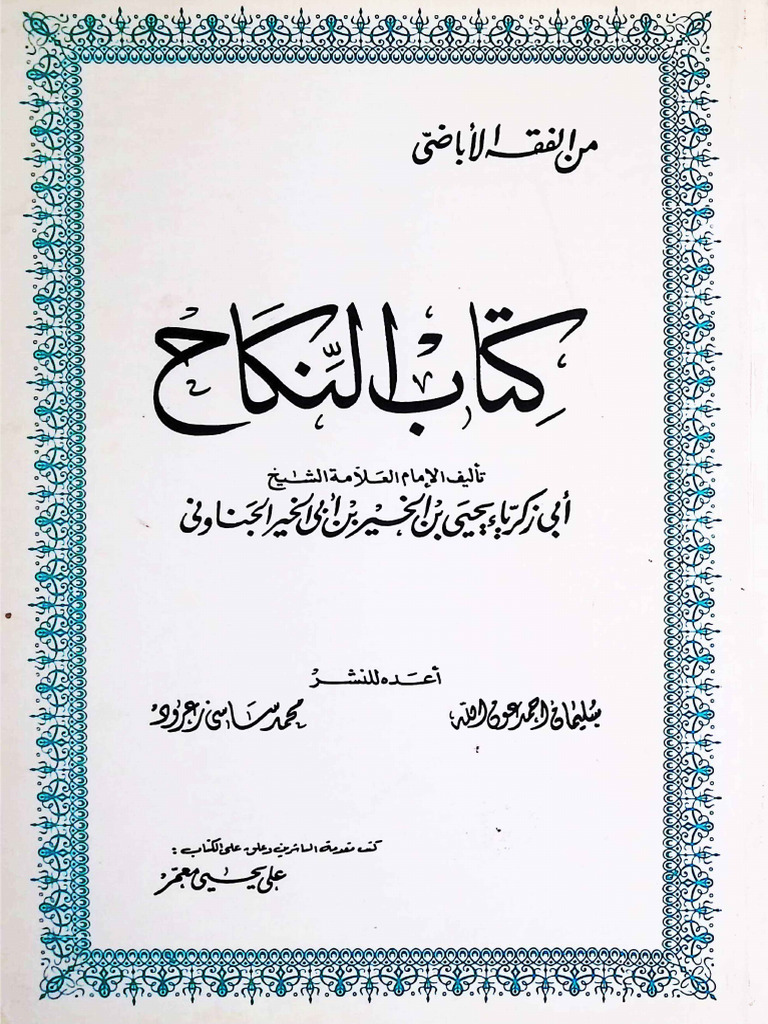 من الفقه الأباضيّ
كِتَابُ النِّكَاحِ
تأليف الإمام العلاّمة الشّيخ
أبي زكريّاء يحيى بن الخير بن أبي الخير الجناوني
أعدّه للنشر
سليمان أحمد عون الله
محمد ساسي زعرود
كتب مقدمة الناشرين وعلق على الكتاب :
علي يحيى معمّر